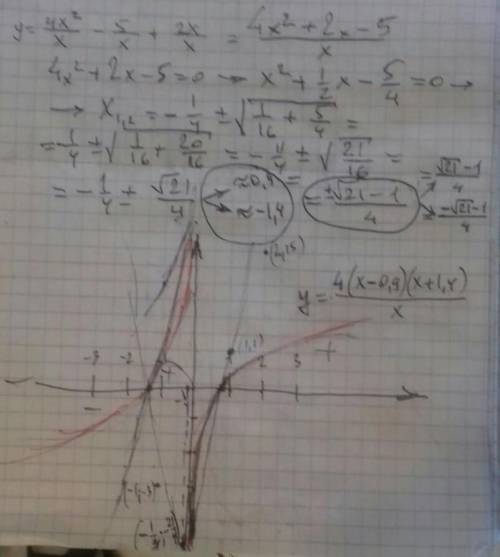 y = 4x²/x − 5/x + 2x/x = (4x² + 2x − 5)/x
4x² + 2x − 5 = 0 → x² + 1/2 x − 5/4 = 0 →
→ X₁,₂ = − 1/4 ± √(1/16 + 5/4) =
= − 1/4 ± √(1/16 + 20/16) = − 1/4 ± √(21/16) =
= − 1/4 ± √21/4 ≈ 0,9 ≈ −1,4 = (±√21 − 1)/4 = (√21 − 1)/4 = (−√21 − 1)/4
y = 4(x − 0,9)(x + 1,4)/x
(1,1)
-3 -2 2 3